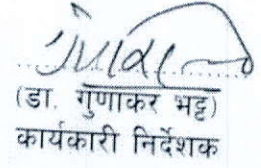 (डा. गुणाकर भट्ट)
कार्यकारी निर्देशक